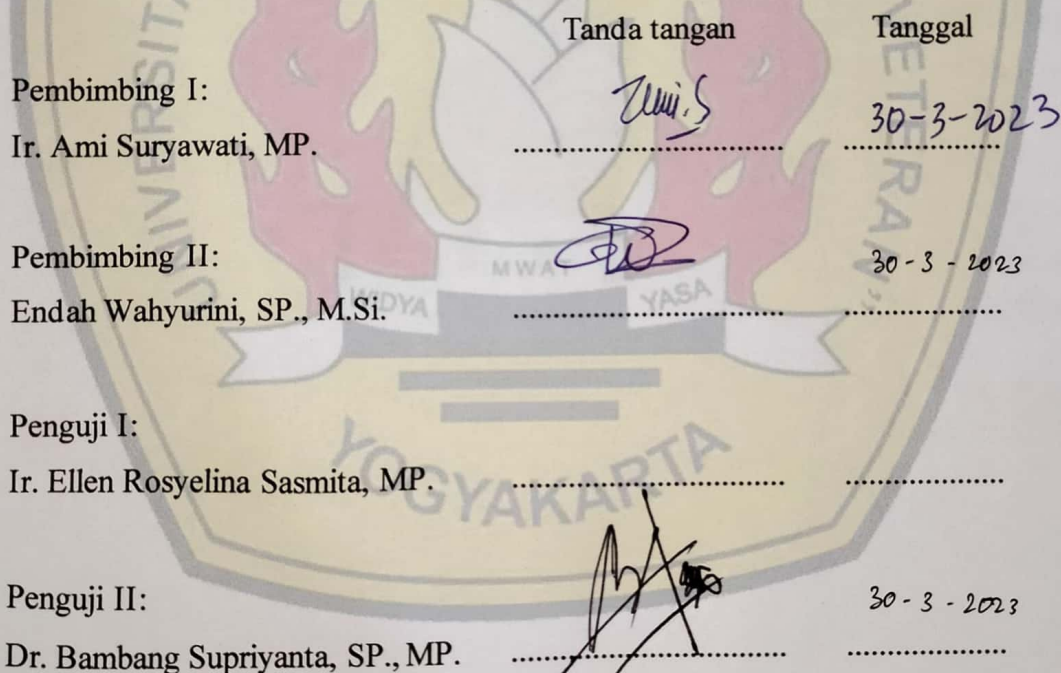 Tanda tangan Tanggal
Pembimbing I:
Ir. Ami Suryawati, MP. 30-3-2023
Pembimbing II:
Endah Wahyurini, SP., M.Si. 30-3-2023
Penguji I:
Ir. Ellen Rosyelina Sasmita, MP.
Penguji II:
Dr. Bambang Supriyanta, SP., MP. 30-3-2023
WIDYA MWAT YASA
YOGYAKARTA
VETERAN"